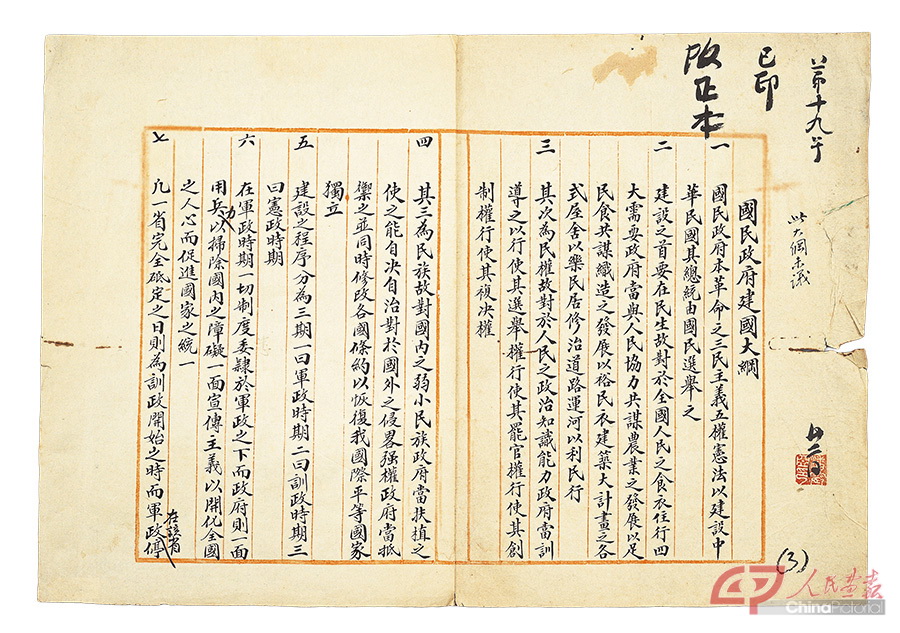 十九年
此大綱
已印
改正本
(3)
國民政府建國大綱
一 國民政府本革命之三民主義五權憲法以建設中
華民國其總統由國民選舉之
二 建設之首要在民生故對於全國人民之食衣住行四
大需要政府當與人民協力共謀農業之發展以足
民食共謀織造之發展以裕民衣建築大計畫之各
式屋舍以樂民居修治道路運河以利民行
三 其次為民權故對於人民之政治知識能力政府當訓
導之以行使其選舉權行使其罷官權行使其創
制權行使其複決權
四 其三為民族故對國內之弱小民族政府當扶植之
使之能自决自治對於國外之侵畧强權政府當抵
禦之並同時修改各國條約以恢復我國際平等國家
獨立
五 建設之程序分為三期一曰軍政時期二曰訓政時期三
曰憲政時期
六 在軍政時期一切制度委隸於軍政之下而政府則一面
用兵力以掃除國内之障礙一面宣傳主義以開化全國
之人心而促進國家之統一
七 凡一省完全砥定之日則為訓政開始之時而軍政停
在該省
人民画报
ChinaPictorial